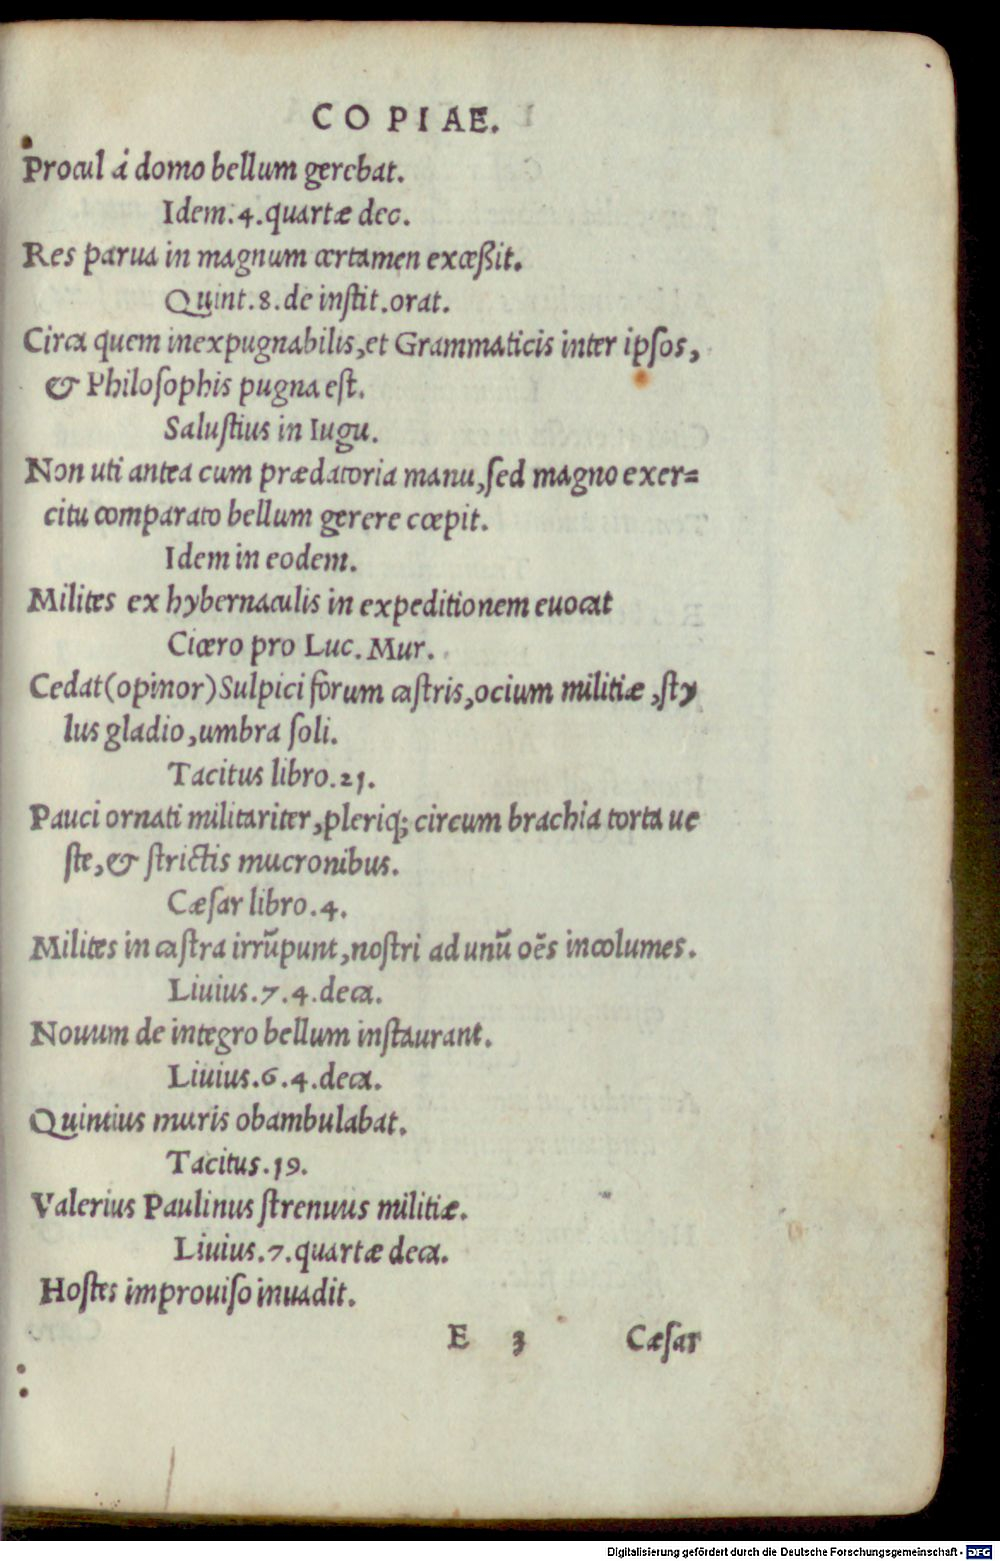 COPIAE.
Procul á domo bellum gerebat.
Idem.4.quartæ dec.
Res parua in magnum certamen exceßit.
Quint.8.de instit.orat.
Circa quem inexpugnabilis,et Grammaticis inter ipsos,
& Philosophis pugna est.
Salustius in Iugu.
Non uti antea cum prædatoria manu,sed magno exer=
citu comparato bellum gerere cœpit.
Idem in eodem.
Milites ex hybernaculis in expeditionem euocat
Cicero pro Luc. Mur.
Cedat(opinor)Sulpici forum castris,ocium militiæ ,sty
lus gladio,umbra soli.
Tacitus libro.21.
Pauci ornati militariter,pleriq; circum brachia torta ue
ste,& strictis mucronibus.
Cæsar libro.4.
Milites in castra irrũpunt,nostri ad unũ oẽs incolumes.
Liuius.7.4.deca.
Nouum de integro bellum instaurant.
Liuius.6.4.deca.
Quintius muris obambulabat.
Tacitus.19.
Valerius Paulinus strenuus militiæ.
Liuius.7.quartæ deca.
Hostes improuiso inuadit.
E 3 Cæsar
Digitalisierung gefördert durch die Deutsche Forschungsgemeinschaft - DFG